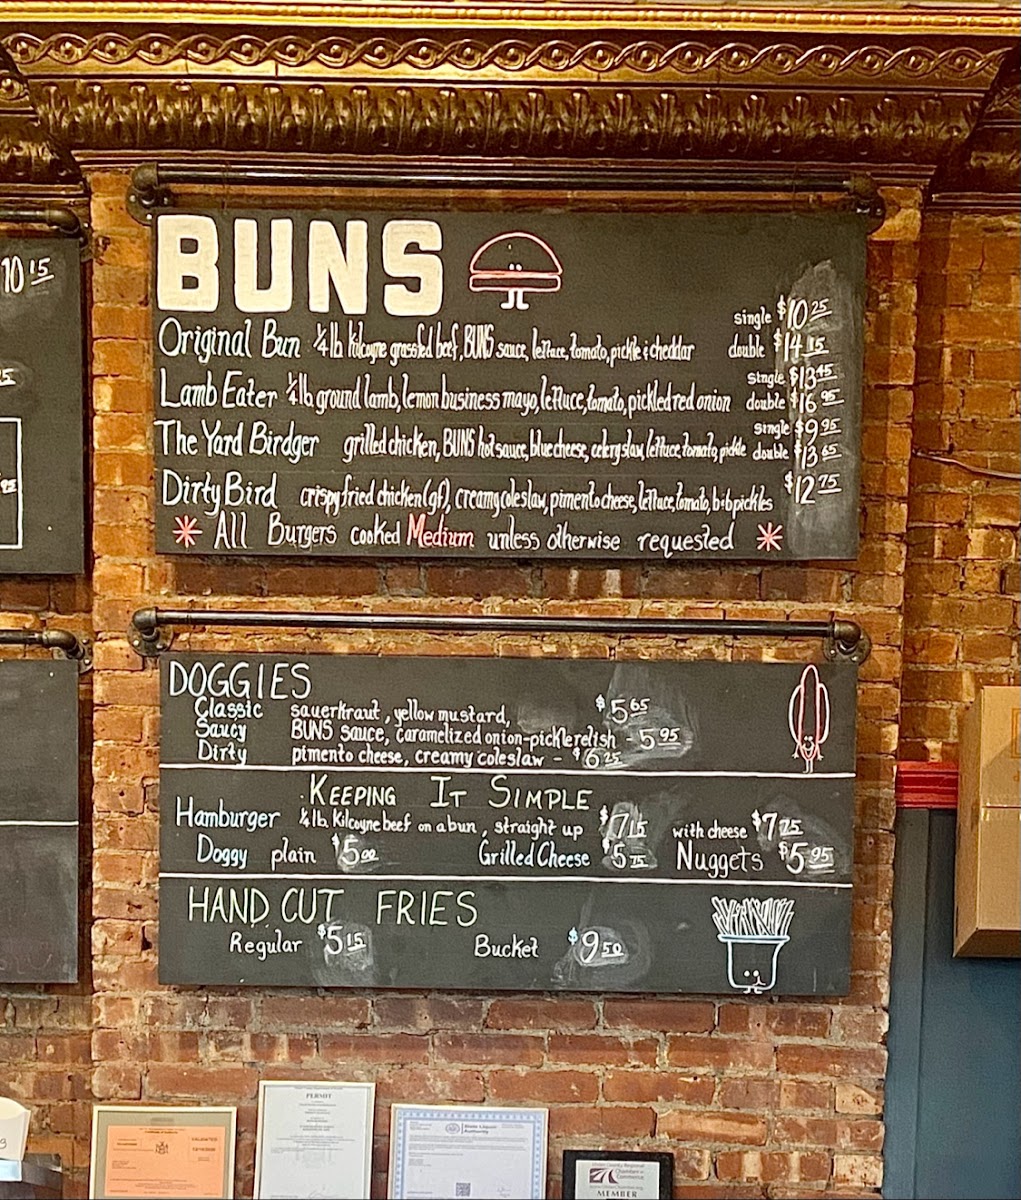 10 15
BUNS
single $10 25
Original Bun ¼ lb Kilcoyne grassfed beef, BUNS sauce, lettuce, tomato, pickle & cheddar double $14 15
single $13 45
Lamb Eater ¼ lb ground lamb, lemon business mayo, lettuce, tomato, pickled red onion double $16 95
single $9 95
The Yard Birdger grilled chicken, BUNS hot sauce, blue cheese, celery slaw, lettuce, tomato, pickle double $13 65
Dirty Bird crispy fried chicken (gf), creamy coleslaw, pimento cheese, lettuce, tomato, b&b pickles $12 75
All Burgers cooked Medium unless otherwise requested
DOGGIES
Classic sauerkraut, yellow mustard, $5 65
Saucy BUNS sauce, caramelized onion-pickle relish 5 95
Dirty pimento cheese, creamy coleslaw - $6 25
KEEPING IT SIMPLE
Hamburger ¼ lb. Kilcoyne beef on a bun, straight up $7 15 with cheese $7 75
Doggy plain $5 00 Grilled Cheese $5 75 Nuggets $5 95
HAND CUT FRIES
Regular $5 15 Bucket $9 50
PERMIT
State Liquor
Authority
Chamber of
Commerce
MEMBER